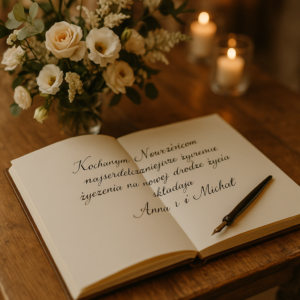 Kochanym Nowożeńcom
najserdeczniejsze życzenie
życzenia na nowej drodze życia
składają
Anna i i Michał